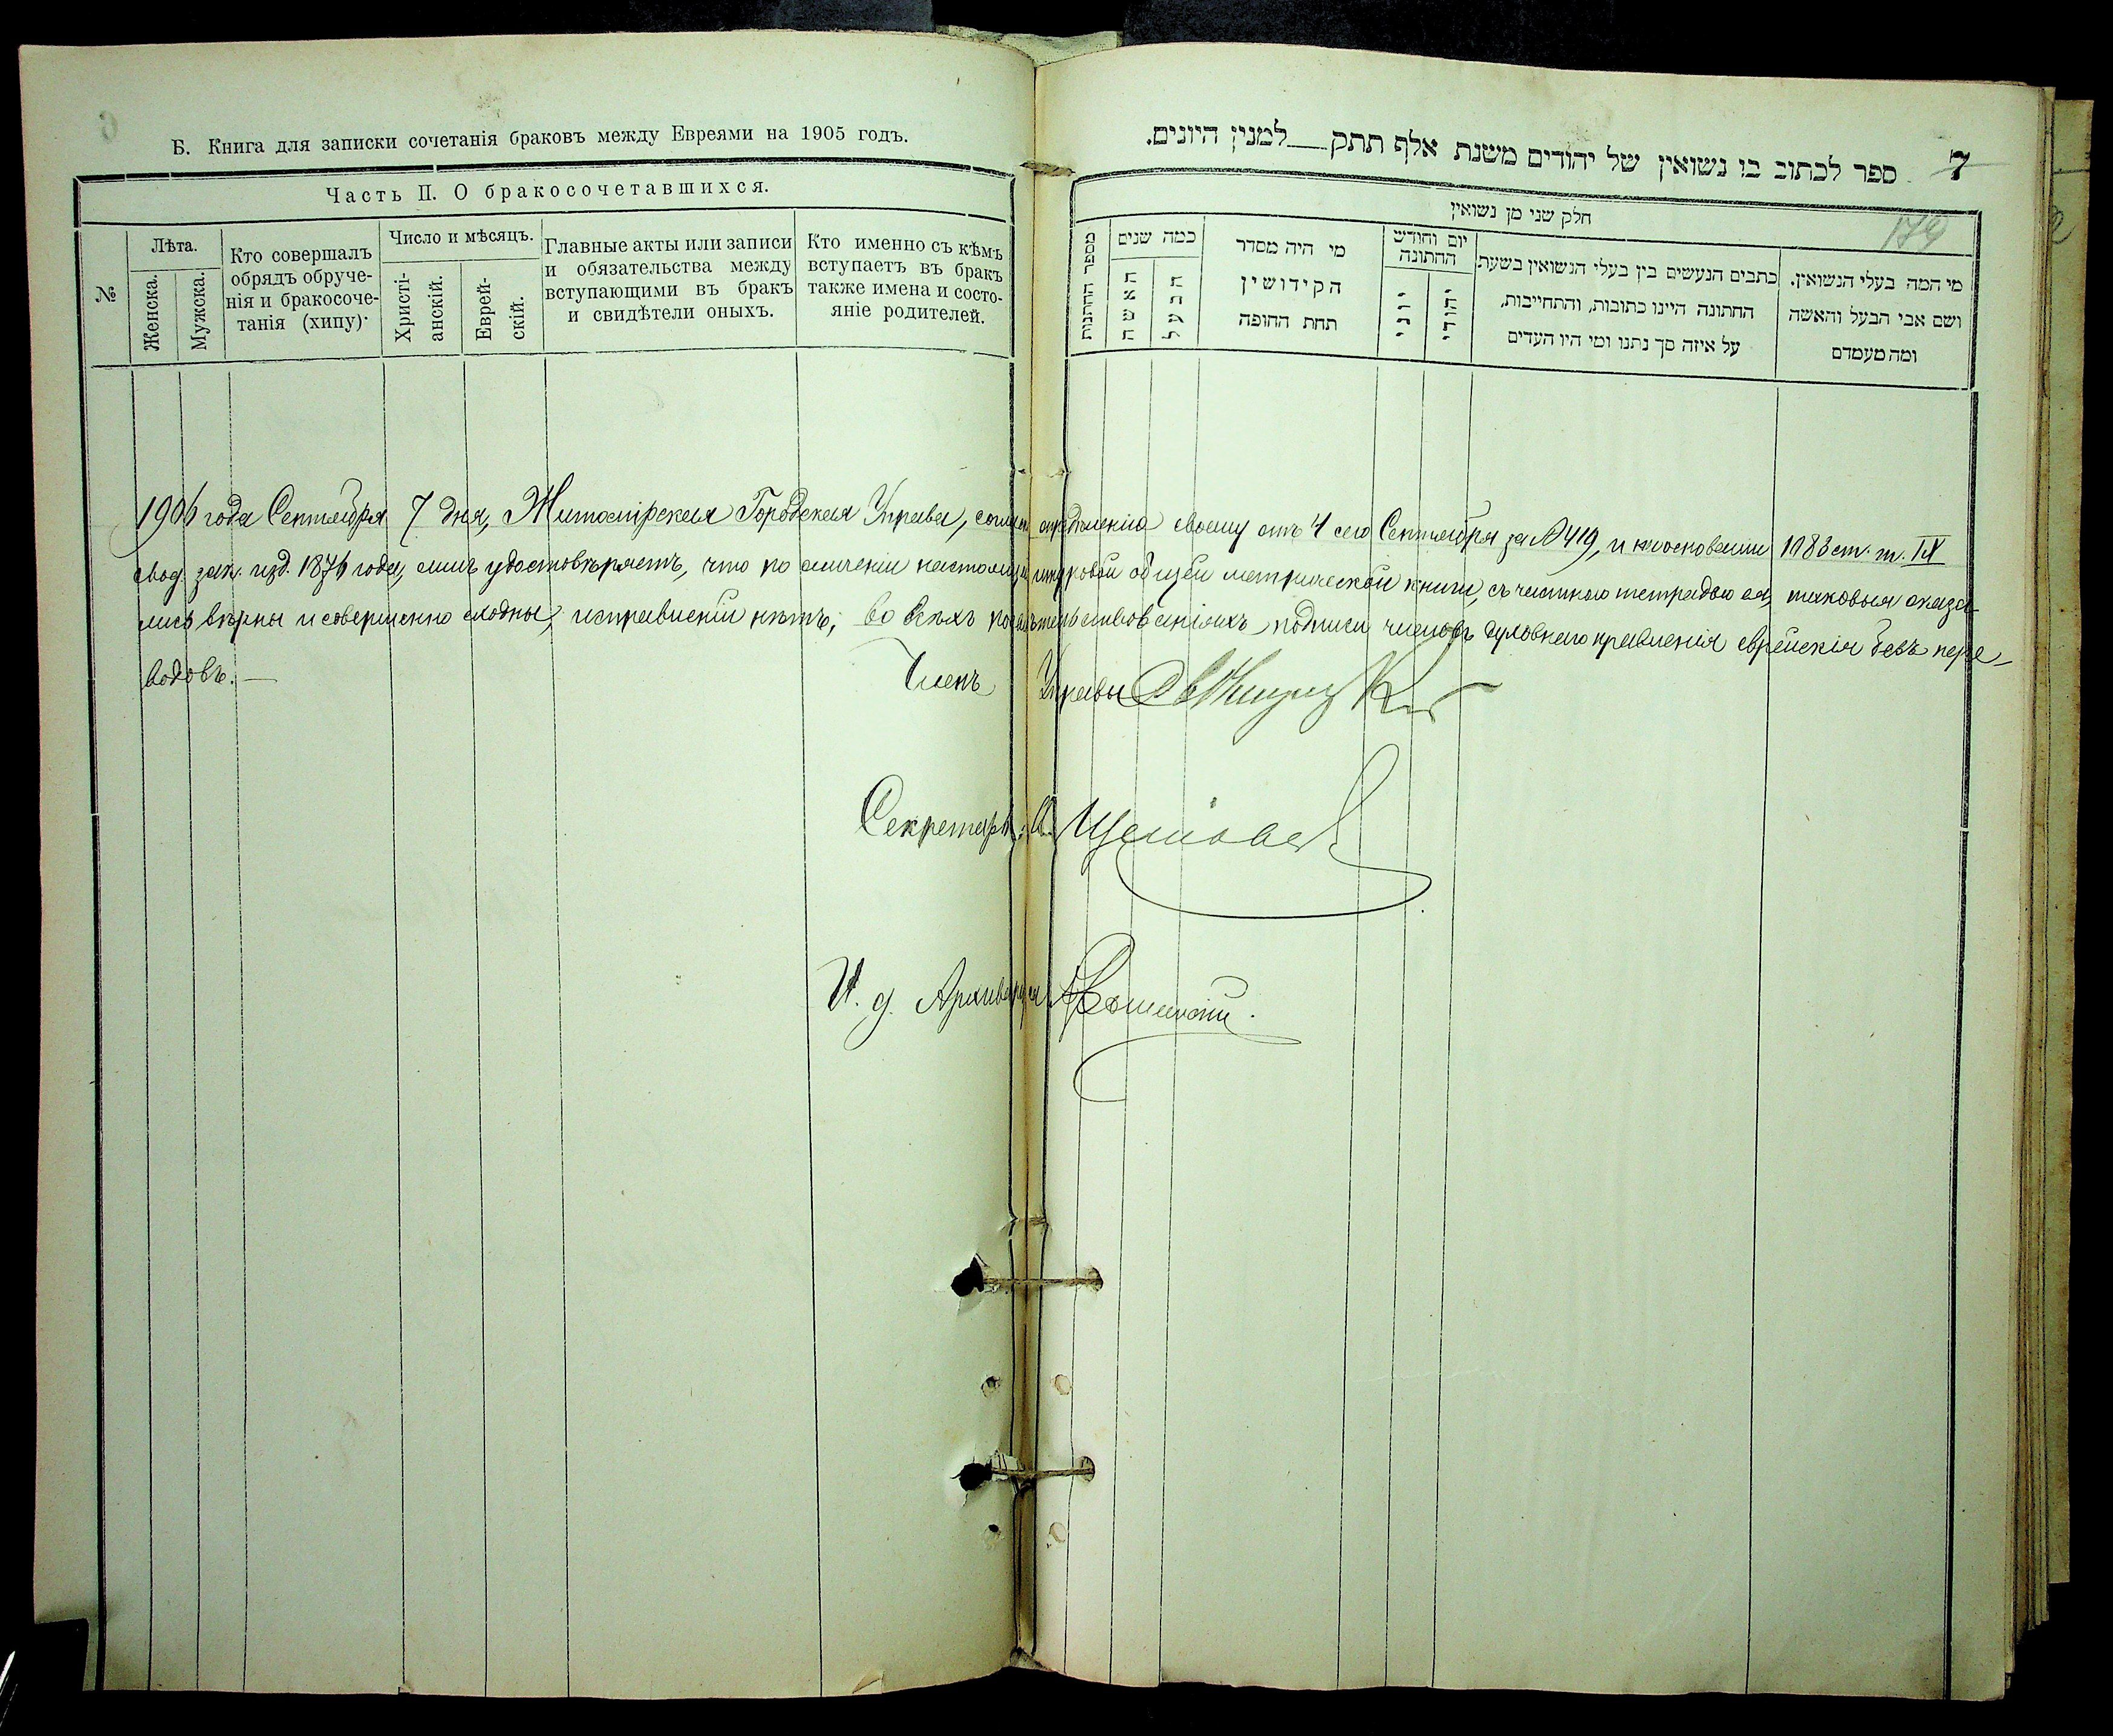 Б. Книга для записки сочетанія браковъ между Евреями на 1905 годъ.
Часть II. О бракосочетавшихся.
№
Лѣта.
Женска.
Мужска.
Кто совершалъ
обрядъ обруче-
нія и бракосоче-
танія (хипу).
Число и мѣсяцъ.
Христі-
анскій.
Еврей-
скій.
Главные акты или записи
и обязательства между
вступающими въ бракъ
и свидѣтели оныхъ.
Кто именно съ кѣмъ
вступаетъ въ бракъ
также имена и состо-
яніе родителей.
7
ספר לכתוב בו נשואין של יהודים משנת אלף תתק___למנין היונים.
חלק שני מן נשואין
מספר החתונות
כמה שנים
האשה
הבעל
מי היה מסדר
הקידושין
תחת החופה
יום וחודש
החתונה
יוני
יהודי
כתבים הנעשים בין בעלי הנשואין בשעת
החתונה היינו כתובות, והתחייבות,
על איזה סך נתנו ומי היו העדים
מי המה בעלי הנשואין.
ושם אבי הבעל והאשה
ומה מעמדם
1906 года Сентября 7 дня, Житомірская Городская Управа, согласно опредѣленію своему отъ 4 сего Сентября за № 419, и на основаніи 1083 ст. т. IX
свод. зак. изд. 1876 года, симъ удостовѣряетъ, что по сличеніи настоящей шнуровой общей метрической книги, съ частною тетрадью ея, таковыя оказа-
лись вѣрны и совершенно сходны, исправленій нѣтъ; во всѣхъ подписи членовъ духовнаго правленія еврейскія безъ пере-
водовъ. —
Членъ Управы
Секретарь
И. д. Архиваріуса